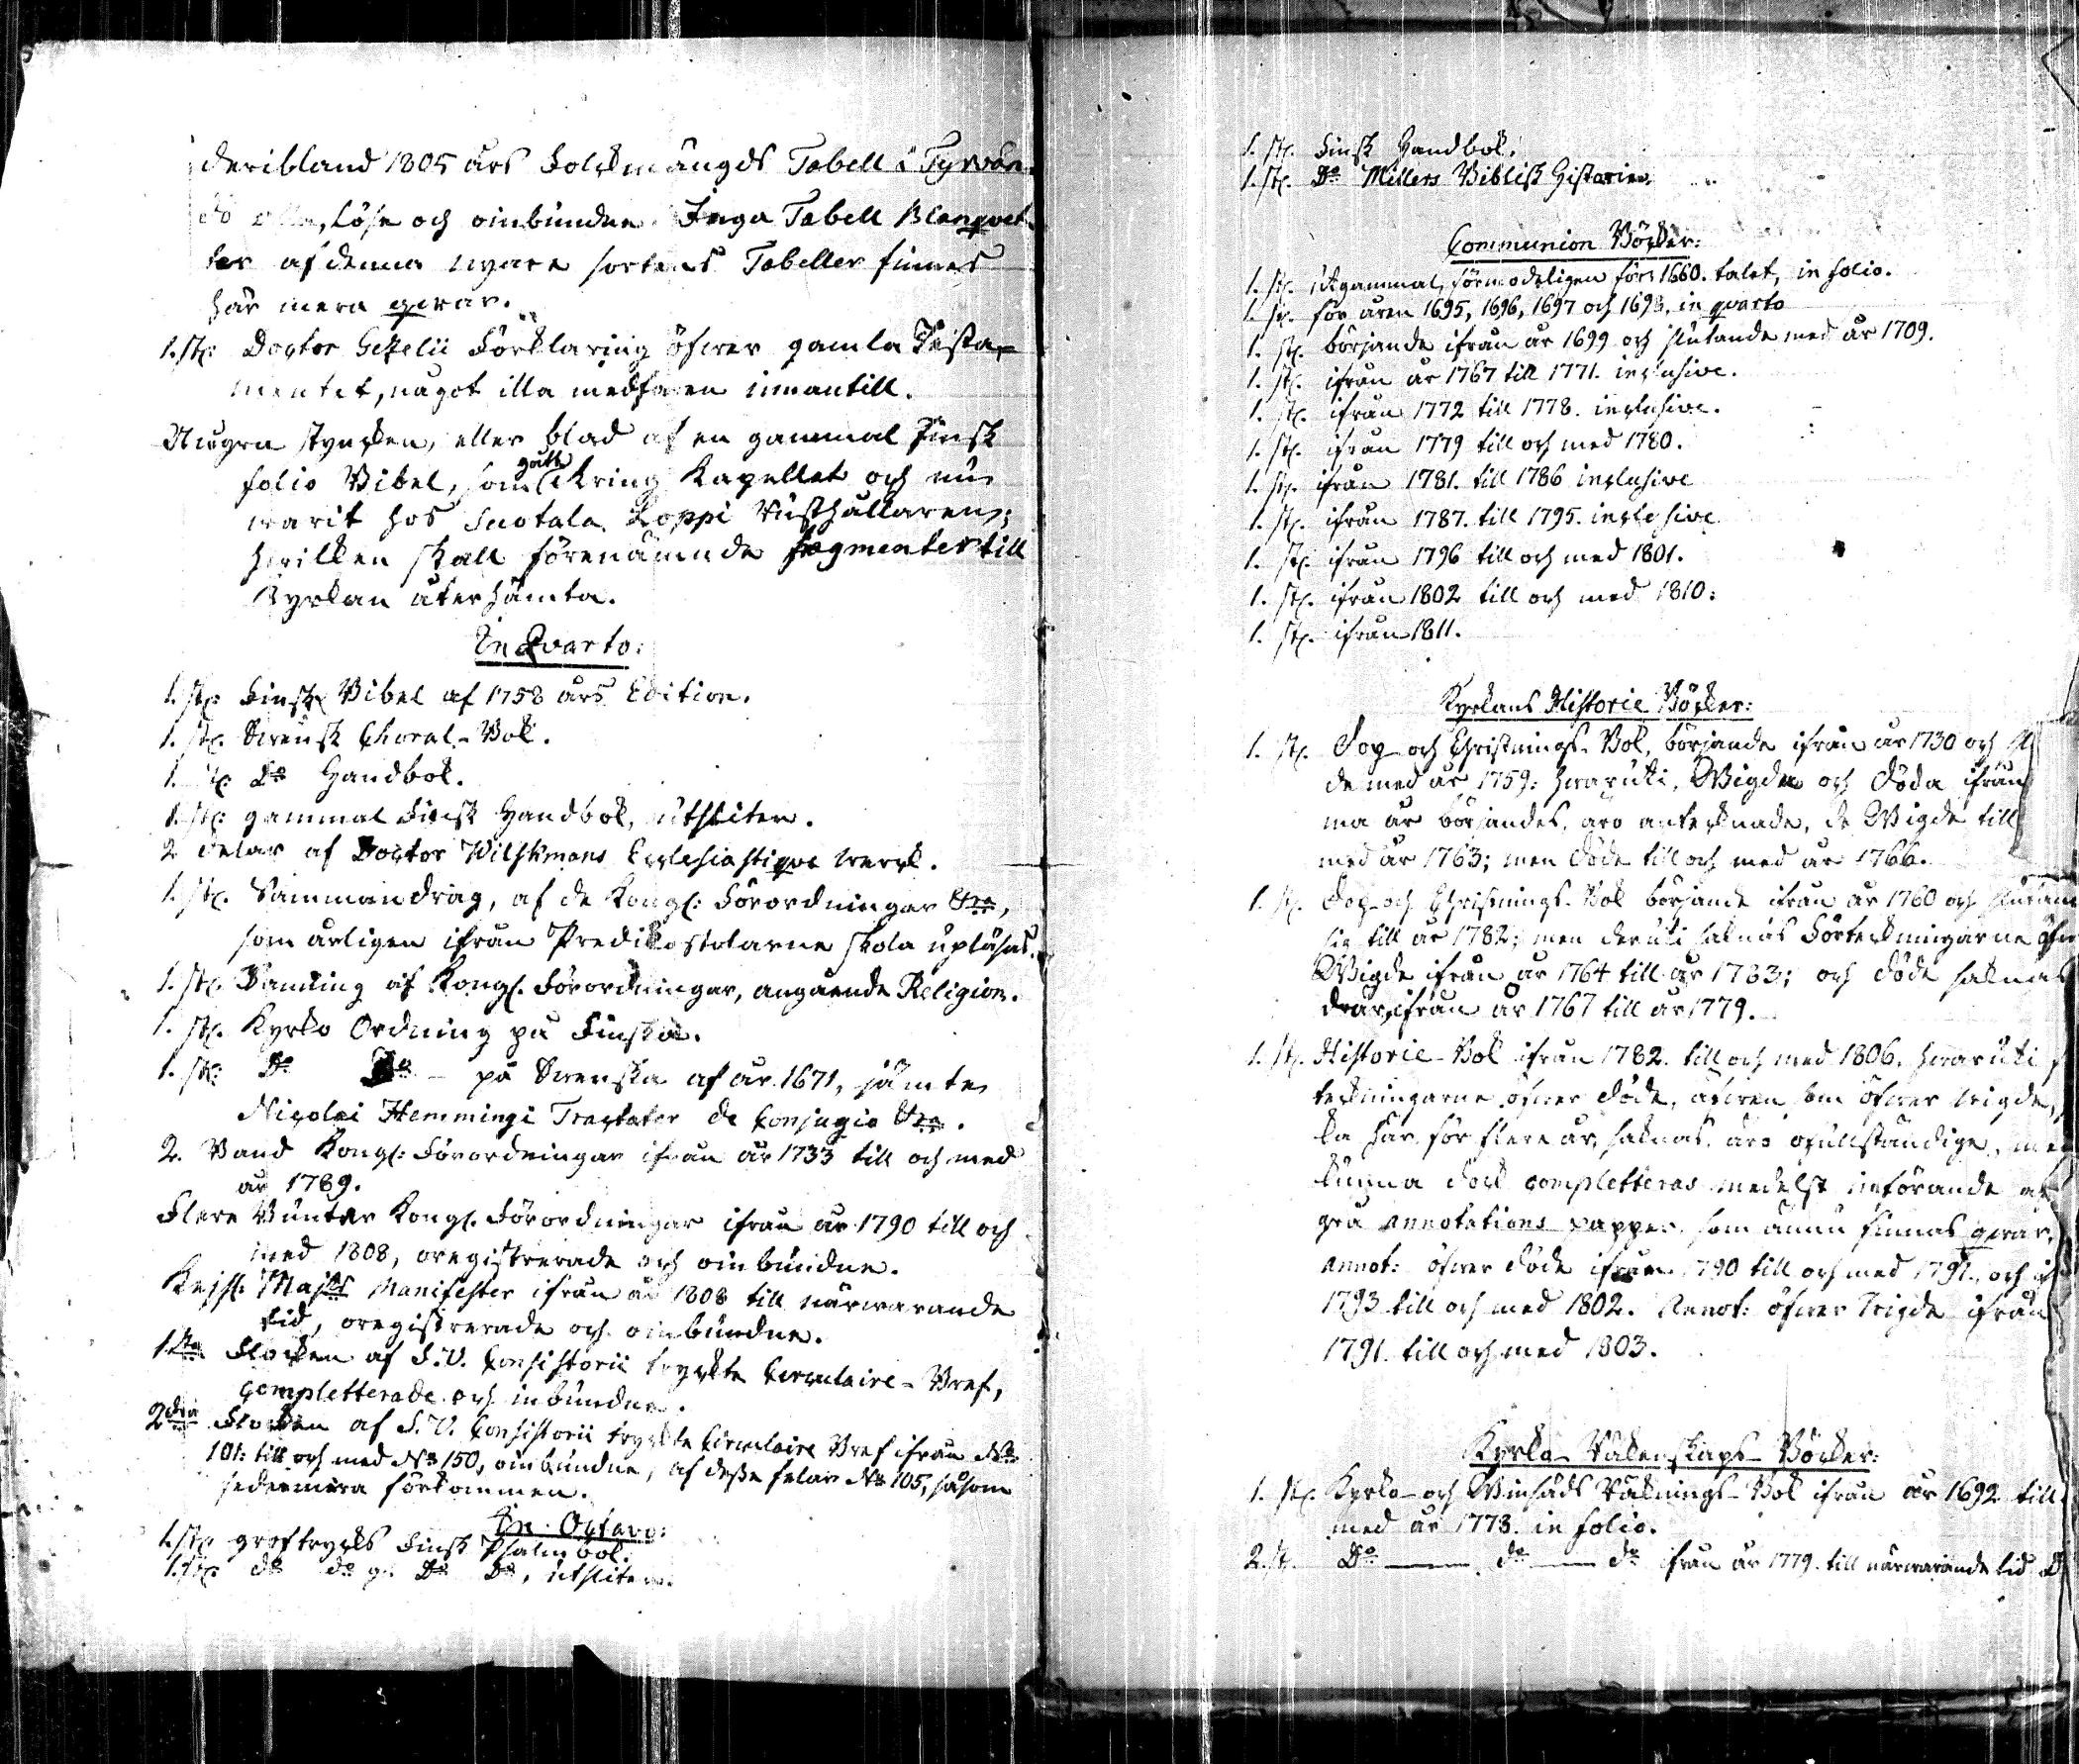 deribland 1805 års Folckmängds Tabell i Tyrvän-
do, löse och oinbundne. Inga Tabell Blanquet-
ter af denna nyare sortens Tabeller finnes
här mera qwar.
1. st: Doctor Gezelii Förklaring öfwer gamla Testa-
mentet, något illa medfaren innantill.
Några stycken, eller blad af en gammal Finsk
folio Bibel, som gått kring Kapellet och nu
warit hos Suotala Koppi Rusthållaren;
hwilken skall förenämnde fragmenter till
Kyrkan återhämta.
In Qvarto:
1. st: Finsk Bibel af 1758 års Edition.
1. st. Swensk Choral-Bok.
1. st. Do Handbok.
1. st: gammal Finsk Handbok, utsliten.
2 delar af Doctor Wilskmans Ecclesiastique werck.
1. st. Sammandrag, af de Kongl: Förordningar &ra,
som årligen ifrån Predikostolarne skola upläsas.
1. st. Samling af Kongl. Förordningar, angående Religion.
1. st. Kyrko Ordning på Finska.
1. st: Do Do - på Swenska af år 1671, jämte
Nicolai Hemmingi Tractater de Conjugio &ra.
2. Band Kongl: Förordningar ifrån år 1733 till och med
år 1789.
Flere Buntar Kongl. Förordningar ifrån år 1790 till och
med 1808, oregistrerade och oinbundne.
Kejsl: Majts Manifester ifrån år 1808 till närwarande
tid, oregistrerade och oinbundne.
1sta Flocken af S.V. Consistorii tryckte Circulaire-Bref,
completterade och inbundne.
2dra Flocken af S.V. Consistorii tryckte Circulaire Bref ifrån No
101: till och med No 150, oinbundne, af desse felar No 105, såsom
sedermera förkommen.
In Octavo:
1. st. groftryckt Finsk Psalmbok.
1. st. do do gr. Do Do, utsliten.
1. st. Finsk Handbok.
1. st. Do Millers Biblisk Historien.
Communion Böcker:
1. st. utgammal, förmodeligen före 1660. talet, in folio.
1. st. för åren 1695, 1696, 1697 och 1698, in qvarto
1. st. började ifrån år 1699 och slutande med år 1709.
1. st. ifrån år 1767 till 1771. inclusive.
1. st. ifrån 1772 till 1778. inclusive.
1. st. ifrån 1779 till och med 1780.
1. st. ifrån 1781. till 1786 inclusive
1. st. ifrån 1787. till 1795. inclusive
1. st. ifrån 1796 till och med 1801.
1. st. ifrån 1802 till och med 1810:
1. st. ifrån 1811.
Kyrkans Historie Böcker:
1. st. Dop- och Christnings-Bok, började ifrån år 1730 och sl
de med år 1759: hwaruti, Wigda och Döda ifrån
ma år börjandes, äro antecknade, de Wigde till
med år 1763; men döde till och med år 1766.
1. st. Dop- och Christnings-Bok började ifrån år 1760 och slutan
sig till år 1782; men deruti saknas Förteckningarne öfw
Wigde ifrån år 1764 till år 1783; och döde saknas
derar ifrån år 1767 till år 1779.
1. st. Historie-Bok ifrån 1782. till och med 1806. hwaruti f
teckningarne öfwer döde, äfwen som öfwer wigde,
ka här för flere år, saknas, äro ofullständige, men
kunna dock completteras medelst införande af
gra annotations papper som ännu finnas qwar.
Annot: öfwer döde ifrån 1790 till och med 1791., och if
1793 till och med 1802. Annot: öfwer wigde ifrån
1791. till och med 1803.
Kyrko-Räkenskaps-Böcker:
1. st. Kyrko- och Winsäds Räknings-Bok ifrån år 1692 till
med år 1778. in folio.
2. st. Do — do — do ifrån år 1779. till närwarande tid